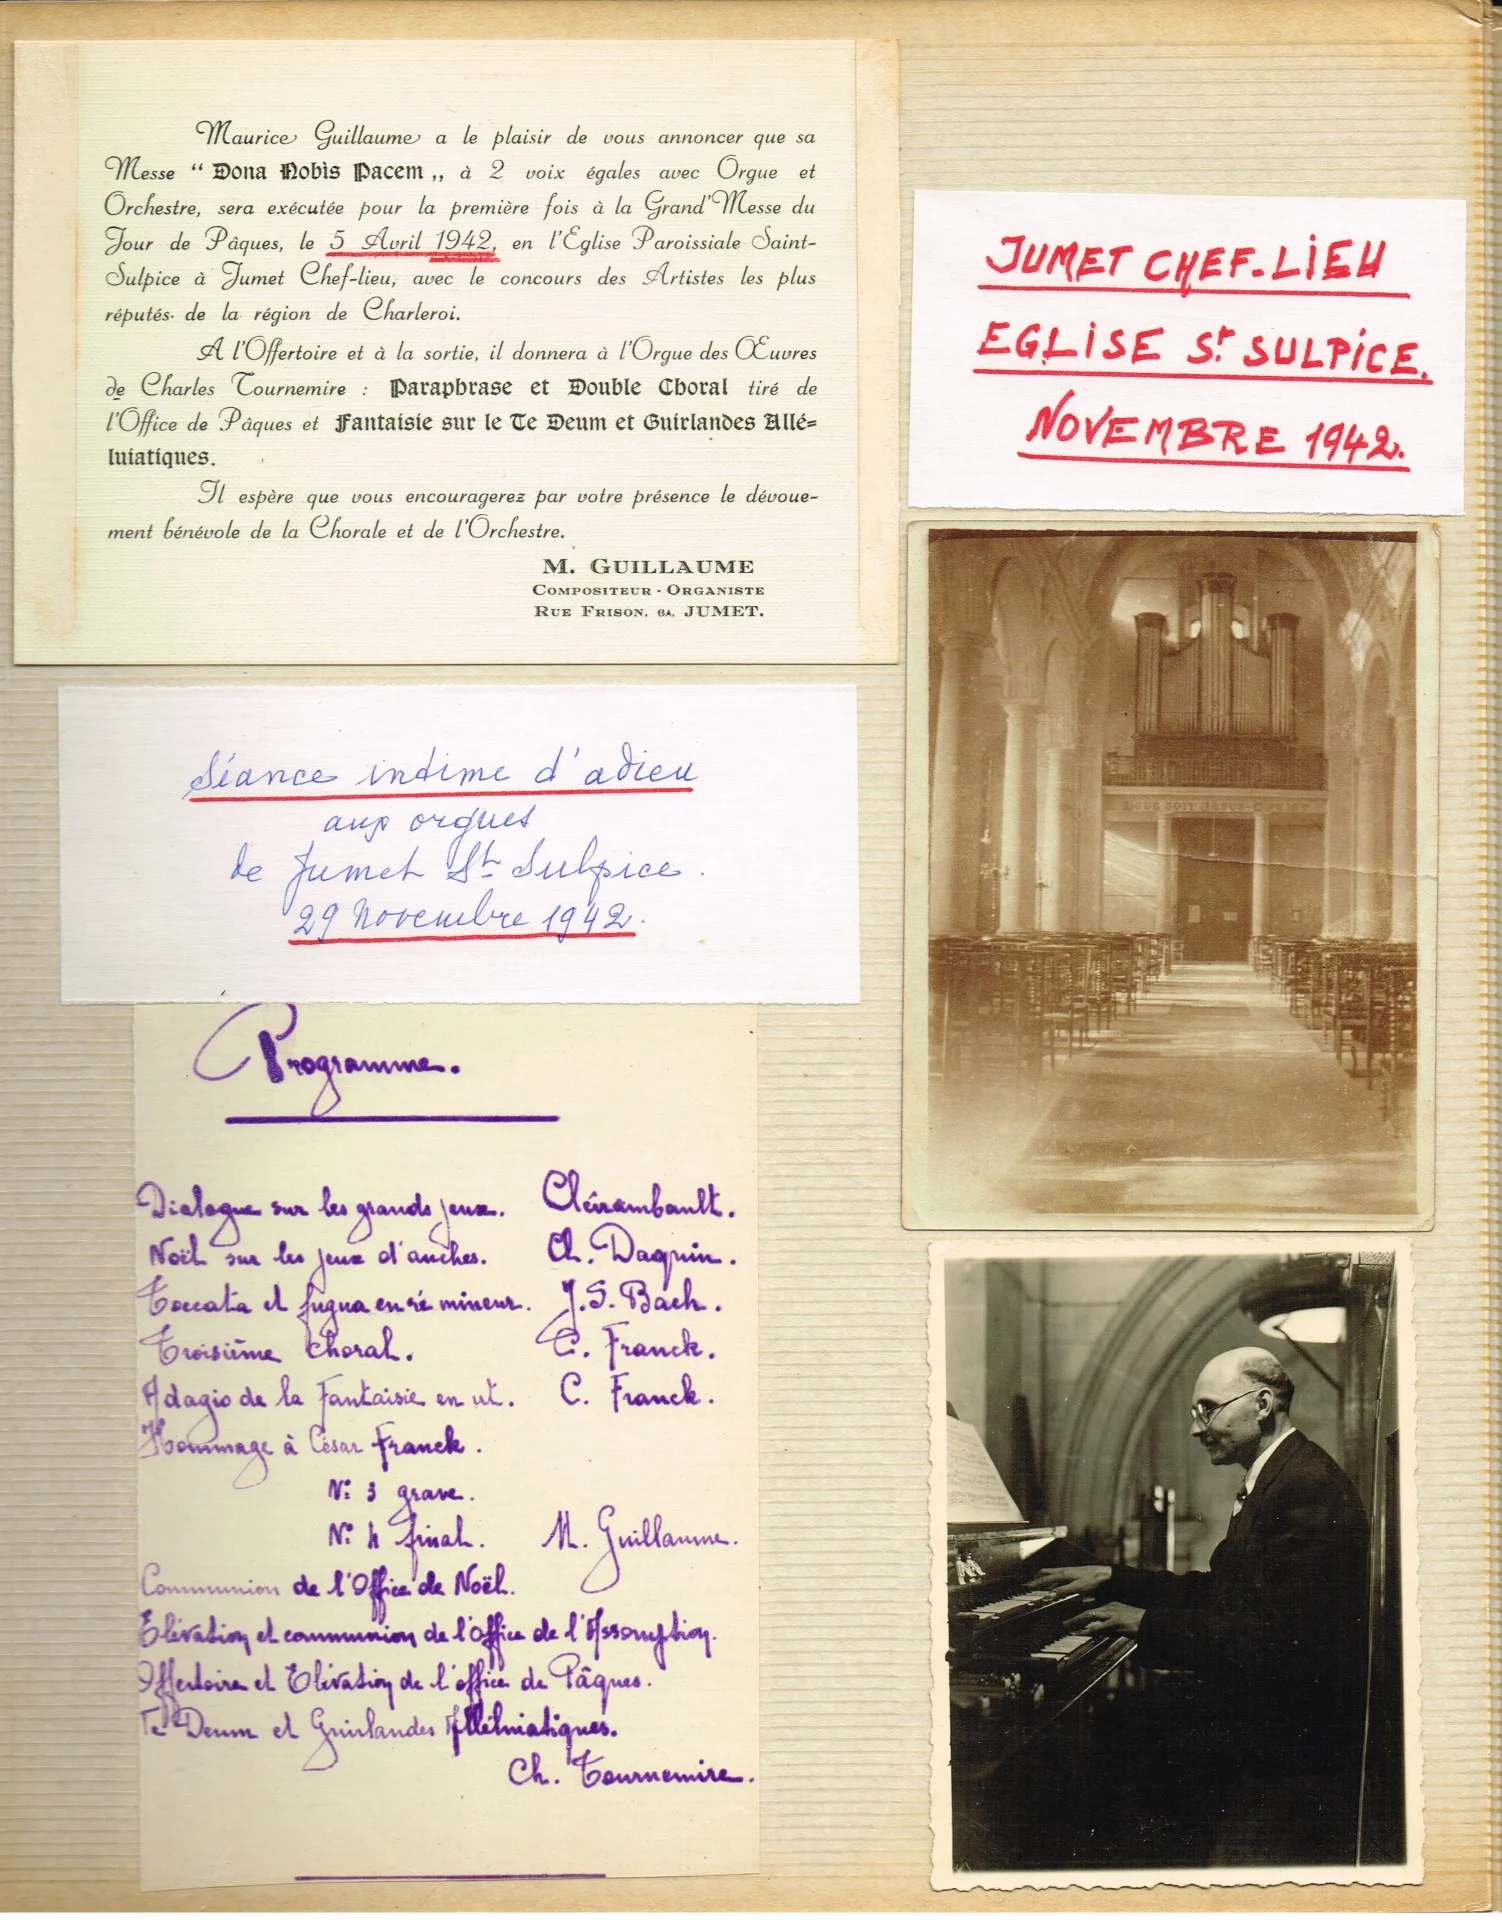 Maurice Guillaume a le plaisir de vous annoncer que sa
Messe “ Dona Nobis Pacem „ à 2 voix égales avec Orgue et
Orchestre, sera exécutée pour la première fois à la Grand'Messe du
Jour de Pâques, le 5 Avril 1942, en l'Eglise Paroissiale Saint-
Sulpice à Jumet Chef-lieu, avec le concours des Artistes les plus
réputés de la région de Charleroi.
A l'Offertoire et à la sortie, il donnera à l'Orgue des Œuvres
de Charles Tournemire : Paraphrase et Double Choral tiré de
l'Office de Pâques et Fantaisie sur le Te Deum et Guirlandes Allé=
luiatiques.
Il espère que vous encouragerez par votre présence le dévoue-
ment bénévole de la Chorale et de l'Orchestre.
M. GUILLAUME
COMPOSITEUR - ORGANISTE
RUE FRISON, 6A, JUMET.
JUMET CHEF-LIEU
EGLISE St SULPICE.
NOVEMBRE 1942.
Séance intime d'adieu
aux orgues
de Jumet St Sulpice.
29 Novembre 1942.
LOUE SOIT JESUS-CHRIST
Programme.
Dialogue sur les grands jeux. Clérambault.
Noël sur les jeux d'anches. Ch. Daquin.
Toccata et fugua en ré mineur. J.S. Bach.
Troisième choral. C. Franck.
Adagio de la Fantaisie en ut. C. Franck.
Hommage à César Franck.
N° 3 grave.
N° 4 final. M. Guillaume.
Communion de l'Office de Noël.
Elévation et communion de l'office de l'Assomption.
Offertoire et Elévation de l'office de Pâques.
Te Deum et Guirlandes Alléluiatiques.
Ch. Tournemire.